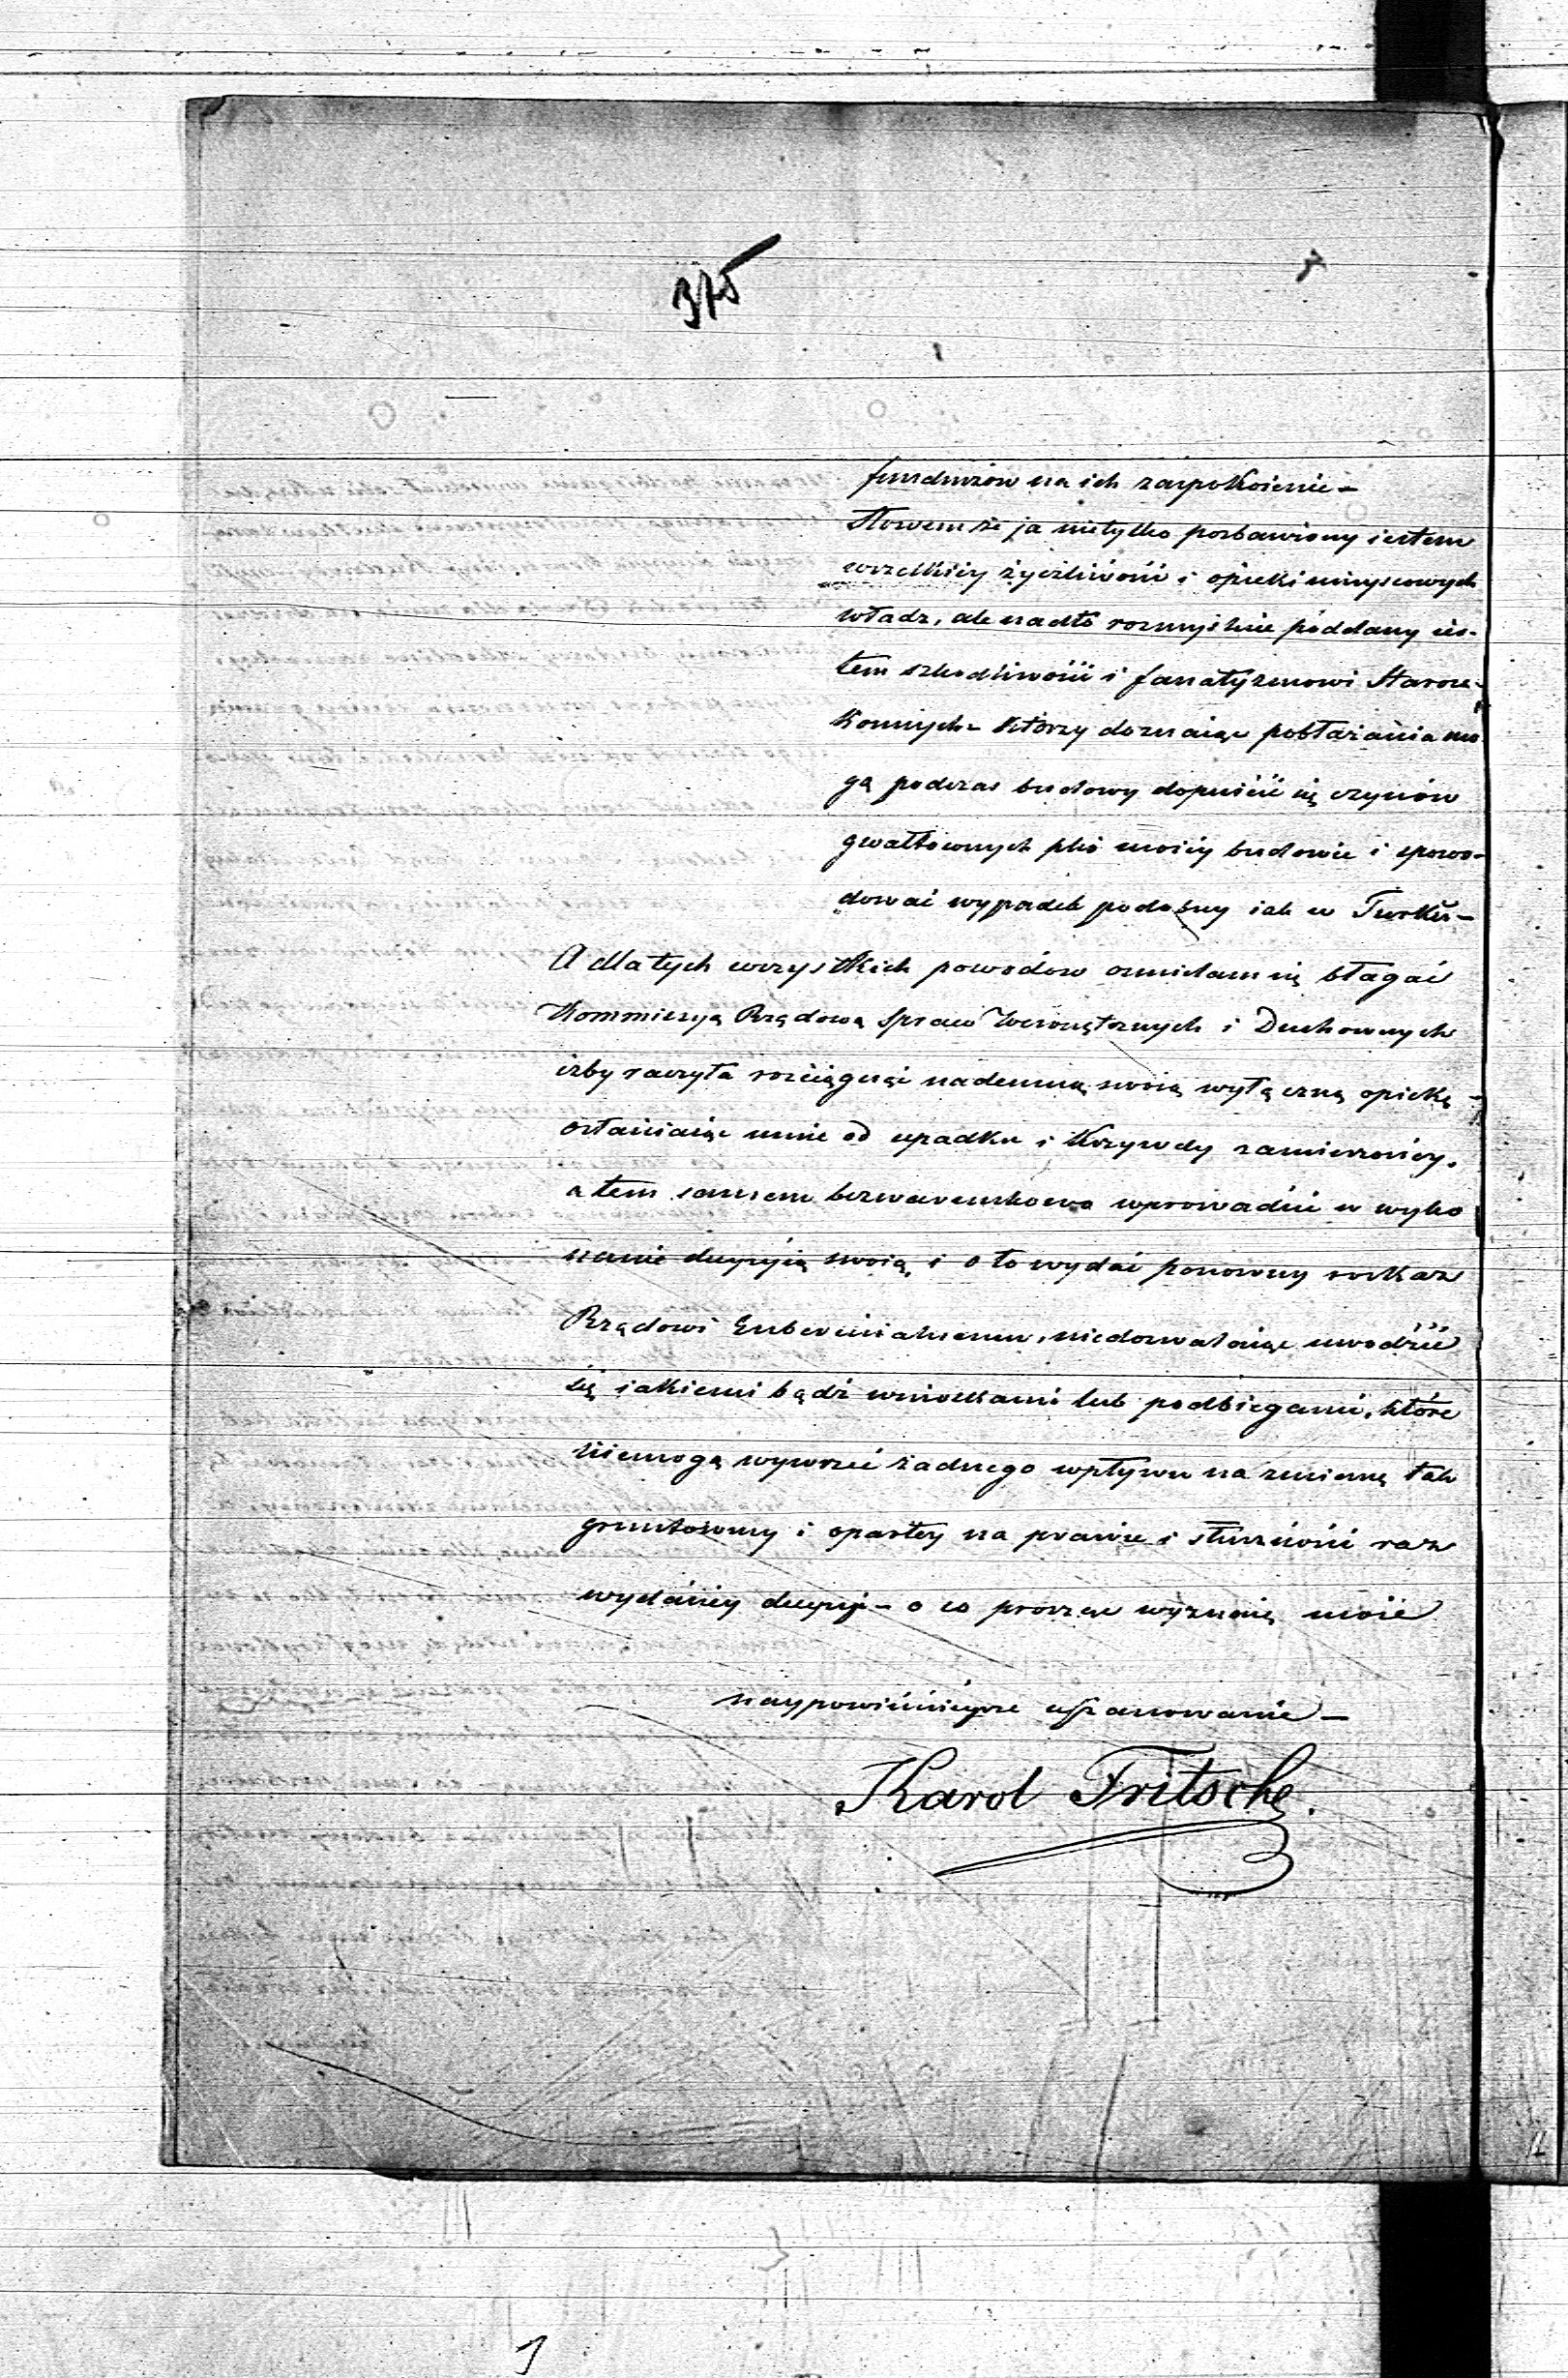 375
funduszów na ich zaspokoienie –
Słowem że ja nietylko pozbawiony iestem
wszelkiéy życzliwości i opieki mieyscowych
władz, ale nadto rozmyślnie poddany ies-
tem szkodliwości i fanatyzmowi Staroza-
konnych – którzy doznaiąc pobłażania mo-
gą podczas budowy dopuścić się czynów
gwałtownych pko moiéy budowie i spowo-
dować wypadek podobny iak w Turku –
A dla tych wszystkich powodów ośmielam się błagać
Kommissyą Rządową Spraw Wewnętrznych i Duchownych
iżby raczyła rościągnąć nademną swoią wyłączną opiekę –
osłaniaiąc mnie od upadku i krzywdy zamierzonéy.
a tem samem bezwarunkowo wprowadzić w wyko
nanie decyzyią swoią i o to wydać ponowny rozkaz
Rządowi Gubernialnemu, niedozwalaiąc uwodzić
się iakiemi bądź wnioskami lub podbiegami, które
niemogą wywrzeć żadnego wpływu na zmianę tak
gruntowney i opartey na prawie i słuszności raz
wydanéy decyzyi – o co prosząc wyznaię moie
naypowinnieysze uszanowanie –
Karol Fritsche.
1